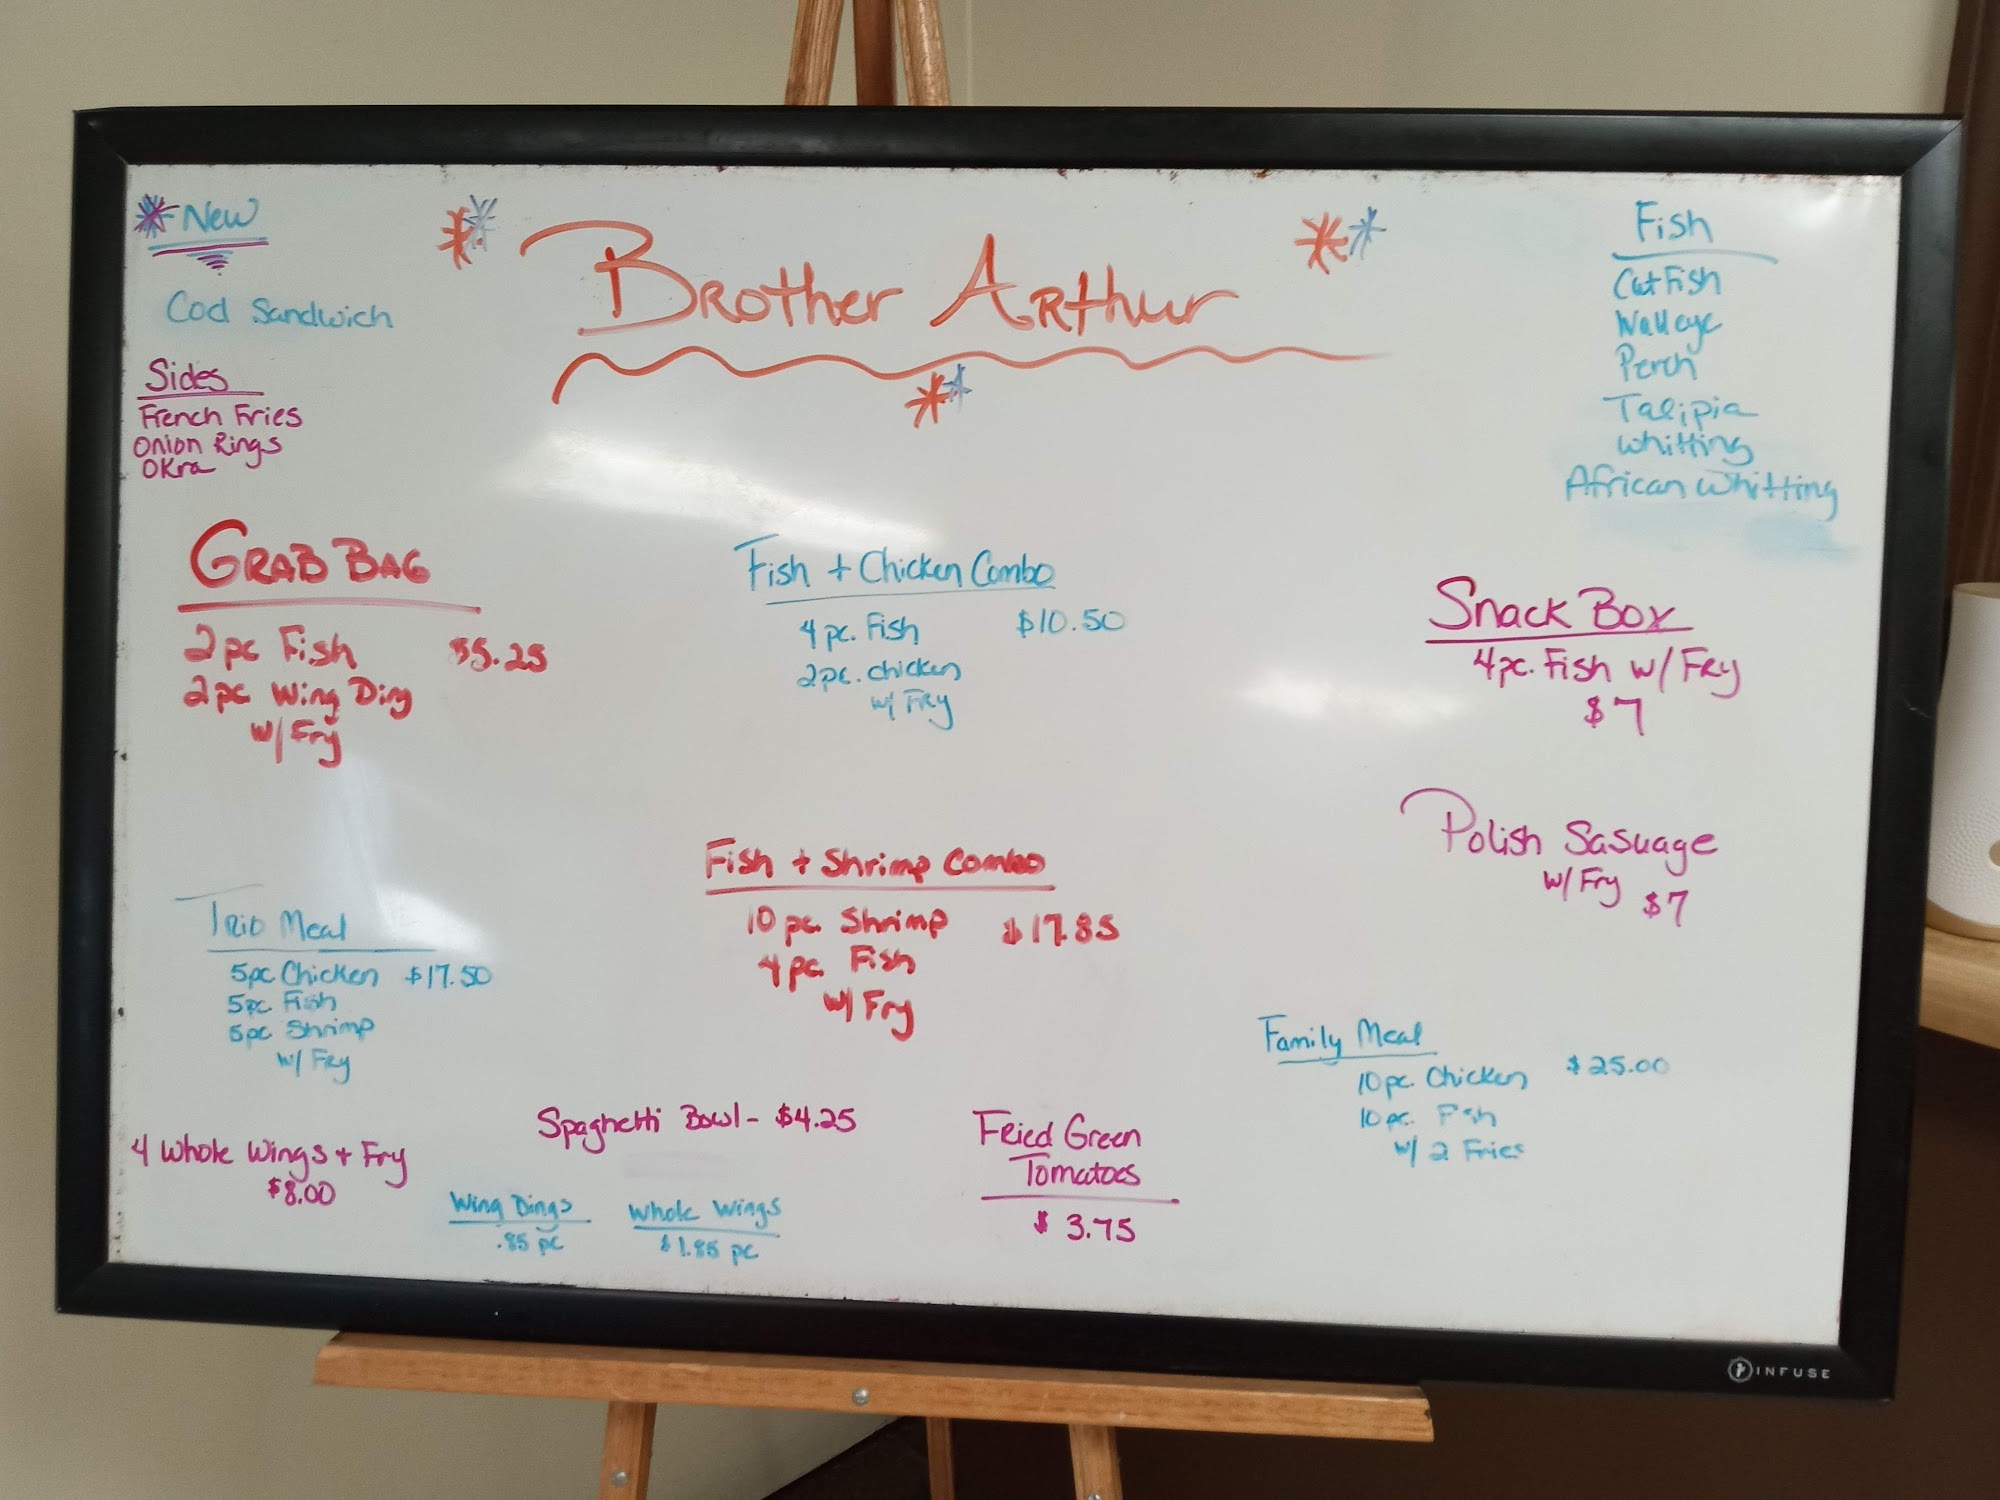 New
Cod Sandwich
Sides
French Fries
Onion Rings
Okra
Brother Arthur
Fish
Catfish
Walleye
Perch
Talipia
Whitting
African Whitting
Grab Bag
2 pc Fish $5.25
2 pc Wing Ding
w/ Fry
Fish + Chicken Combo
4 pc. Fish $10.50
2 pc. chicken
w/ Fry
Snack Box
4 pc. Fish w/ Fry
$7
Polish Sasuage
w/ Fry $7
Trio Meal
5pc Chicken $17.50
5pc Fish
5pc Shrimp
w/ Fry
Fish + Shrimp Combo
10 pc. Shrimp $17.85
4 pc. Fish
w/ Fry
Family Meal
10 pc. Chicken $25.00
10 pc. Fish
w/ 2 Fries
4 Whole Wings + Fry
$8.00
Spaghetti Bowl - $4.25
Wing Dings
.85 pc
Whole Wings
$1.85 pc
Fried Green
Tomatoes
$3.75
INFUSE